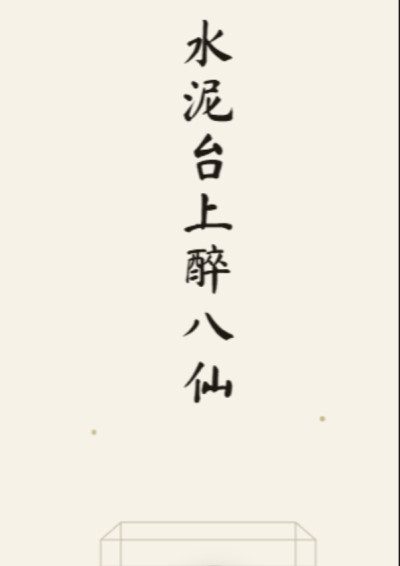 水泥台上醉八仙